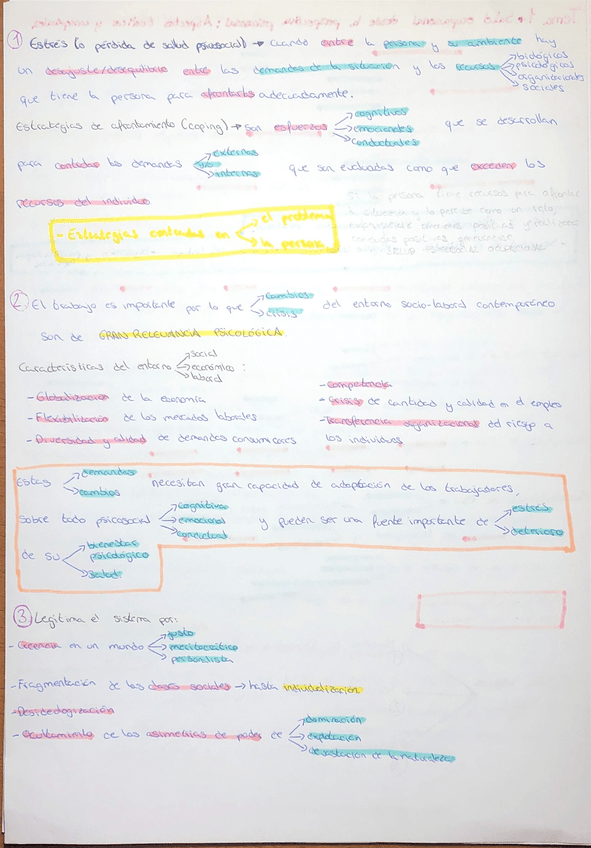 ① Estrés (o pérdida de salud psicosocial) → Cuando entre la persona y su ambiente hay
un desajuste/desequilibrio entre las demandas de la situación y los recursos → biológicos
→ psicológicos
→ organizacionales
→ sociales
que tiene la persona para afrontarlos adecuadamente.
Estrategias de afrontamiento (coping) → son esfuerzos → cognitivos
→ emocionales
→ conductuales
que se desarrollan
para controlar las demandas → externas
→ internas
que son evaluadas como que exceden los
recursos del individuo
- Estrategias centradas en → el problema
→ la persona
Si la persona tiene recursos para afrontar
② El trabajo es importante por lo que → cambios
→ crisis
del entorno socio-laboral contemporáneo
son de GRAN RELEVANCIA PSICOLÓGICA
Características del entorno → social
→ económico
→ laboral
:
- Globalización de la economía
- Flexibilización de los mercados laborales
- Diversidad y calidad de demandas consumidores
- competencia
- Crisis de cantidad y calidad en el empleo
- Transferencia organizacional del riesgo a
los individuos
Estas → demandas
→ cambios
necesitan gran capacidad de adaptación de los trabajadores,
sobre todo psicosocial → cognitiva
→ emocional
→ conductual
y pueden ser una fuente importante de → estrés
→ deterioro
de su → bienestar
psicológico
→ salud
③ Legitima el sistema por:
- Creencia en un mundo → justo
→ meritocrático
- Fragmentación de las clases sociales → hasta individualización
- Desideologización
- Ocultamiento de las asimetrías de poder de → dominación
→ explotación
→ devastación de la naturaleza